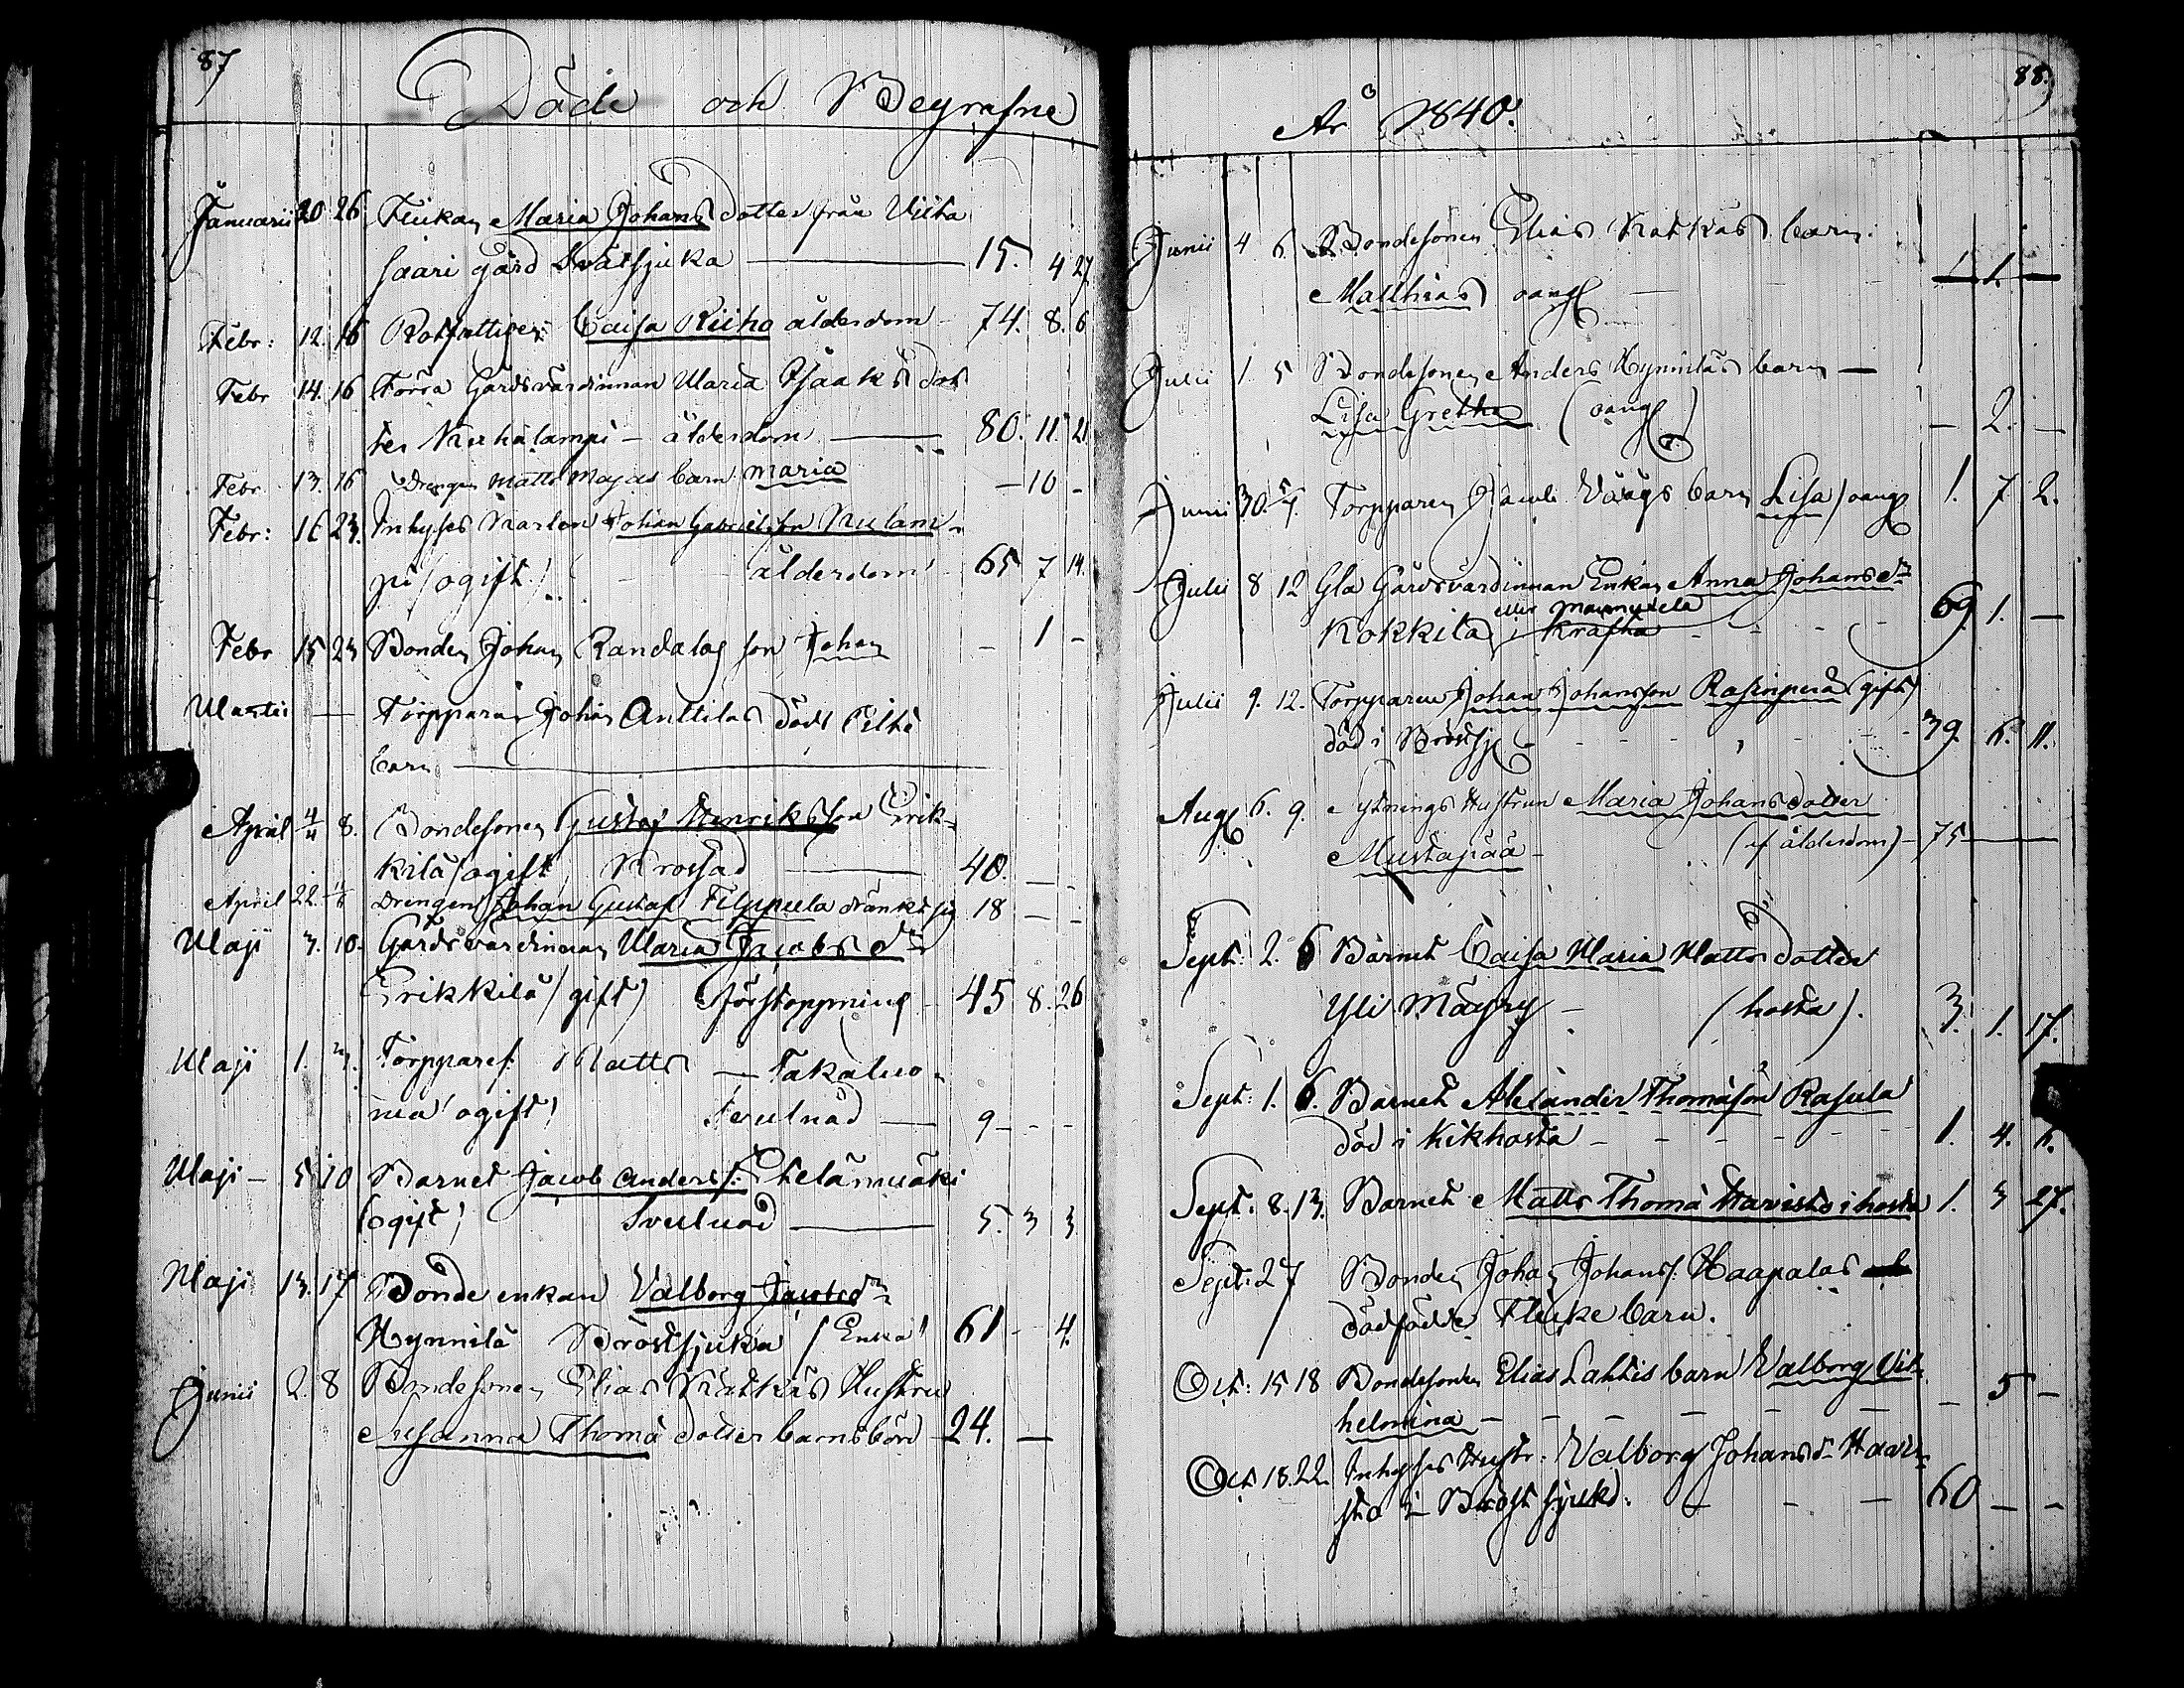 87
Döde och Begrafne
Januarii 20 26 Flickan Maria Johans dotter från Viita
saari gård Svårsjuka — 15. 4 27
Febr: 12. 16 Rotfattigen Caisa Riiho ålderdom 74. 8. 6
Febr 14. 16 Förra Gårdsvärdinnan Maria Isaks dot
ter Kuhalampi — ålderdom — 80. 11. 21.
Febr 13. 16 Drengen Matts Majas barn Maria — 10 -
Febr: 16 23. Inhyses Karlen Johan Gabrielsson Kulam-
pi /ogift/ ålderdom 65 7 14.
Febr 15 23 Bonden Johan Randalas son Johan - 1 -
Martii — Torpparen Johan Anttilas död
barn —
April 4/4 8. Bondesonen Gustaf Henriksson Erik-
kilä /ogift/ Krossad — 40. — -
April 22. Drengen Johan Gustaf Filppula dränkt sig 18 — -
Maji 3. 10. Gårdsvärdinnan Maria Jacobs dr
Erikkilä /gift/ förstoppning - 45 8. 26
Maji 1. 3. Torpparen Matts — Takaluo-
ma /ogift/ — 9 - - -
Maji - 5 10 Barnet Jacob Anders s: Etelämäki
/ogift/ Svulnad — 5. 3 3
Maji 13. 17 Bonde enkan Valborg Jacobsdr
Hynnilä Bröstsjuka /Enka/ 61 - 4.
Junii 2. 8 Bondesonen Elias Katkas Hustru
Susanna Thomä dotter barnsbörd - 24. —
88.
År 1840.
Junii 4 6. Bondesonen Elias Katkas barn
Matthias oang — 1. —
Julii 1. 5 Bondesonen Anders Hynniläs barn —
Lisa Gretha (oang) — 2. —
Junii 30. 5/7. Torpparen Jacob barn Lisa /oang 1. 7 2.
Julii 8 12 Gla Gårdsvärdinnan Enkan Anna Johans dr
eller
Kokkila i Kräfta - - - 69. 1. —
Julii 9. 12. Torpparen Johan Johansson Rasinperä (gift)
död i Bröstsj - - - 39. 6. 11.
Aug 6. 9. Sytnings Hustrun Maria Johans dotter
Mustapää - (af ålderdom) - 75 —
Sept: 2. 6 Barnet Caisa Maria Matts dotter
Yli Mäyry - (hosta). 3. 1. 17.
Sept: 1. 6. Barnet Alexander Thomäson Rasula
död i Kikhosta - - - 1. 4. 6.
Sept. 8. 13. Barnet Matts Thomä Harvisto i hosta 1. 3 27.
Sept: 27 Bonden Johan Johans s: Haapalas
dödfödde Flicke barn.
Oct: 15 18 Bondesonen Elias Lahtis barn Valborg Vil-
helmina - - - — 5 -
Oct 18. 22. Inhyses Hustr: Valborg Johans d- Haavi-
sto i Bröst sjukd. - - — 60 — -